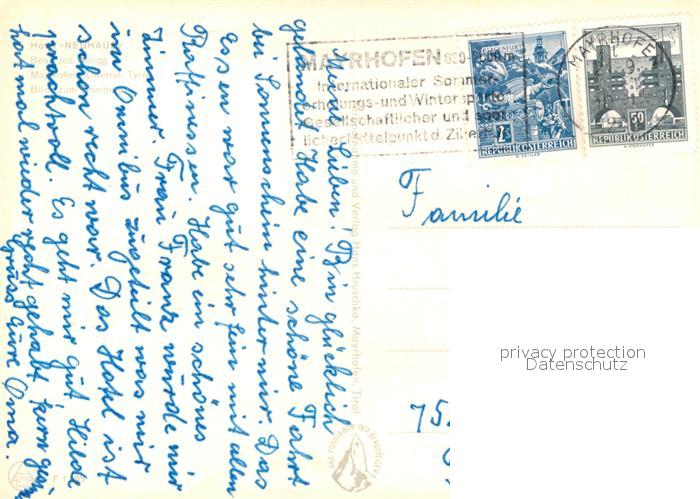 Hotel «NEUHAUS»
Bes. Jos. Moigg
Mayrhofen, Zillertal, Tyrol
MAYRHOFEN 630-2000 m
Internationaler Sommer-
erholungs- und Wintersport-
Gesellschaftlicher und sport-
licher Mittelpunkt d. Ziller
KLAGENFURT
REPUBLIK ÖSTERREICH
MAYRHOFEN
50
REPUBLIK ÖSTERREICH
Meine Lieben! Bin glücklich
gelandet. Habe eine schöne Fahrt
bei Sonnenschein hinter mir. Das
Essen war gut sehr fein mit allen
Raffinessen. Habe ein schönes
Zimmer. Frau Franz wurde mir
im Omnibus zugeteilt was mir
schon recht war. Das Hotel ist
prachtvoll. Es geht mir gut Hilde
hat mal wieder recht gehabt.
Gruss Eure Oma.
Verlag Hans Hruschka, Mayrhofen, Tirol
Familie
75
privacy protection
Datenschutz